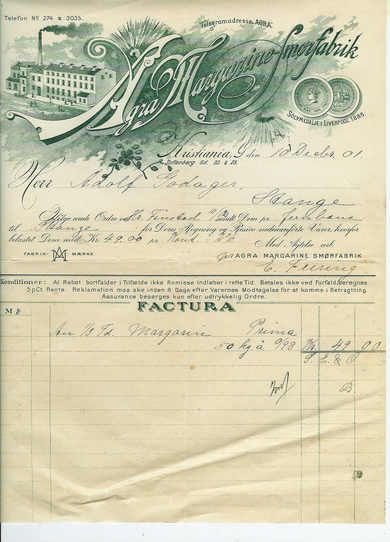 Telefon No 274 & 3035.
Telegramadresse: AGRA.
Agra Margarine-Smørfabrik
SØLVMEDALJE I LIVERPOOL 1886
Kristiania, d. den 10 Decbr. 01
Herr Adolf Sodager,
Stange
Ifølge ærede Ordre
sendt Dem pr. Jernbane
til Stange for Deres Regning og Risiko nedennævnte Varer, hvorfor
belastet Dem med Kr. 49.00 pr.
Med Agtelse
FABRIK MÆRKE
for AGRA MARGARINE SMØRFABRIK
Konditioner: Al Rabat bortfalder i Tilfælde ikke Remisse indløber i rette Tid. Betales ikke ved Forfald, beregnes
5 pCt. Rente. Reklamation maa ske inden 8 Dage efter Varernes Modtagelse for at komme i Betragtning
Assurance besørges kun efter udtrykkelig Ordre.
FACTURA
Margarin Prima
50 kg à 0/98 Kr 49 00
S. E. & O.